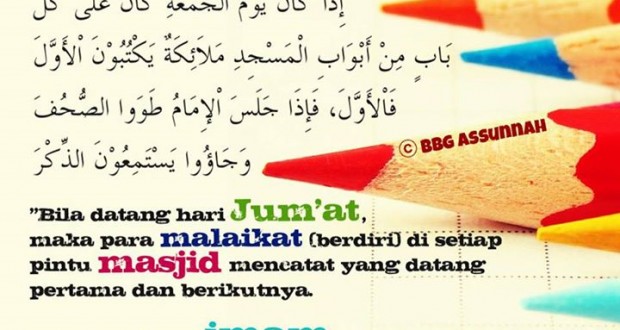 إِذَا كَانَ يَوْمُ الْجُمُعَةِ كَانَ عَلَى كُلِّ
بَابٍ مِنْ أَبْوَابِ الْمَسْجِدِ مَلَائِكَةٌ يَكْتُبُوْنَ الْأَوَّلَ
فَالْأَوَّلَ، فَإِذَا جَلَسَ الْإِمَامُ طَوَوا الصُّحُفَ
وَجَاؤُوا يَسْتَمِعُوْنَ الذِّكْرَ
© BBG Assunnah
"Bila datang hari Jum'at,
maka para malaikat (berdiri) di setiap
pintu masjid mencatat yang datang
pertama dan berikutnya.
imam